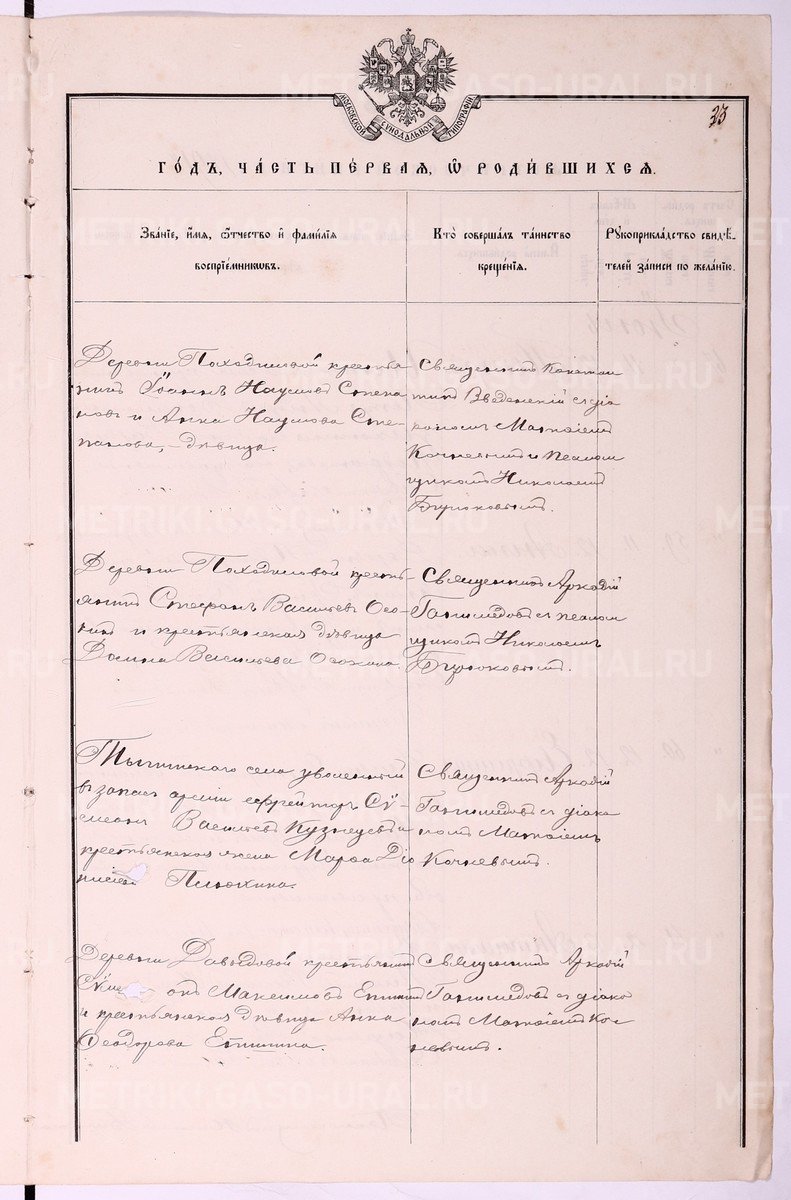 МОСКОВСКОЙ СѴНОДАЛЬНОЙ ТИПОГРАФІИ
33
ГОДЪ, ЧАСТЬ ПЕРВАЯ, Ѡ РОДИВШИХСЯ.
Званіе, имя, отчество и фамилія
воспріемниковъ.
Кто совершалъ таинство
крещенія.
Рукоприкладство свидѣ-
телей записи по желанію.
Деревни Походиловой крестья
нинъ Іоаннъ Наумовъ Степа
новъ и Анна Наумова Сте-
панова, - дѣвица.
Священникъ Констан
тинъ Введенскій съ діа
кономъ Матѳіемъ
Кочневымъ и псалом
щикомъ Николаемъ
Бирюковымъ.
Деревни Походиловой кресть
янинъ Стефанъ Васильевъ Осо
кинъ и крестьянская дѣвица
Домна Васильева Осокина.
Священникъ Аркадій
Ганимедовъ съ псалом
щикомъ Николаемъ
Бирюковымъ.
села уволенный
въ запасъ арміи ефрейторъ Сѵ-
меонъ Васильевъ Кузнецовъ и
крестьянская жена Марѳа Діо
Плюхина.
Священникъ Аркадій
Ганимедовъ съ діако
номъ Матѳіемъ
Кочневымъ.
Деревни Давыдовой крестьянинъ
Сѵме онъ Максимовъ Епишинъ
и крестьянская дѣвица Анна
Ѳеодорова Епишина.
Священникъ Аркадій
Ганимедовъ съ діако
номъ Матѳіемъ Коч
невымъ.
METRIKI.GASO-URAL.RU